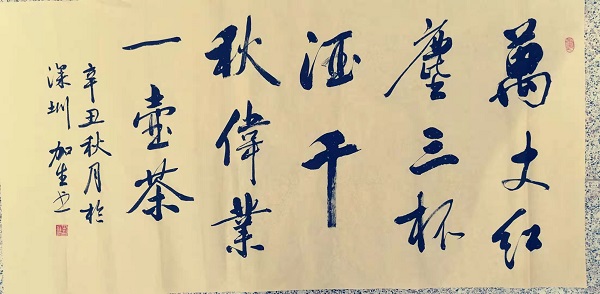 萬丈紅
塵三杯
酒千
秋偉業
一壺茶
辛丑秋月於
深圳 加生书